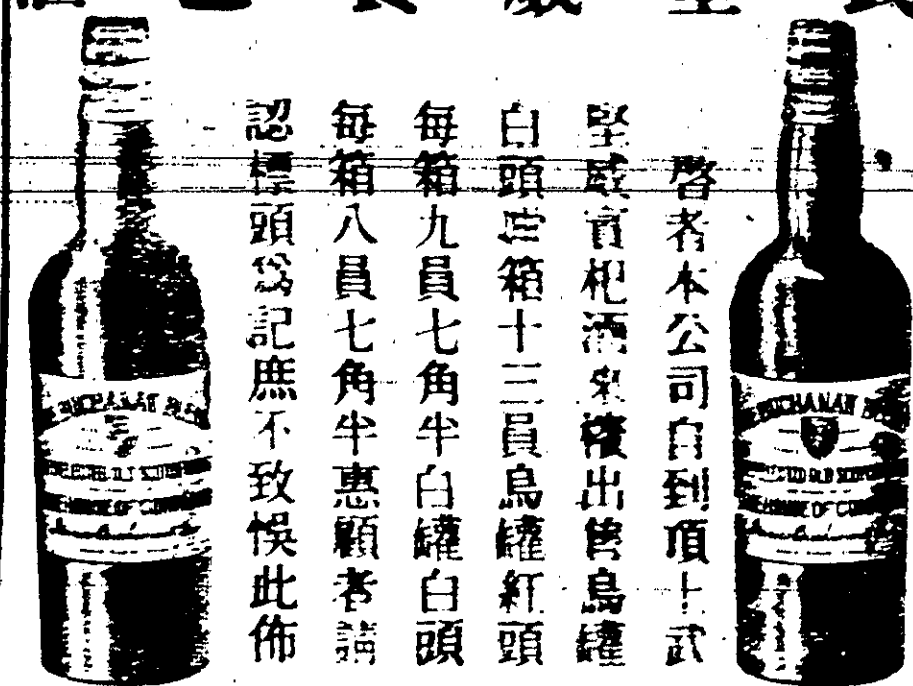 啓者本公司自到頂上武
堅威實杞酒來發出售烏罐
白頭每箱十三員烏罐紅頭
每箱九員七角半白罐白頭
每箱八員七角半惠顧者請
認標頭為記庶不致悞此佈
BUCHANAN BLEND
SELECTED OLD SCOTCH
HOUSE OF COMMONS
BUCHANAN BLEND
SELECTED OLD SCOTCH
HOUSE OF COMMONS